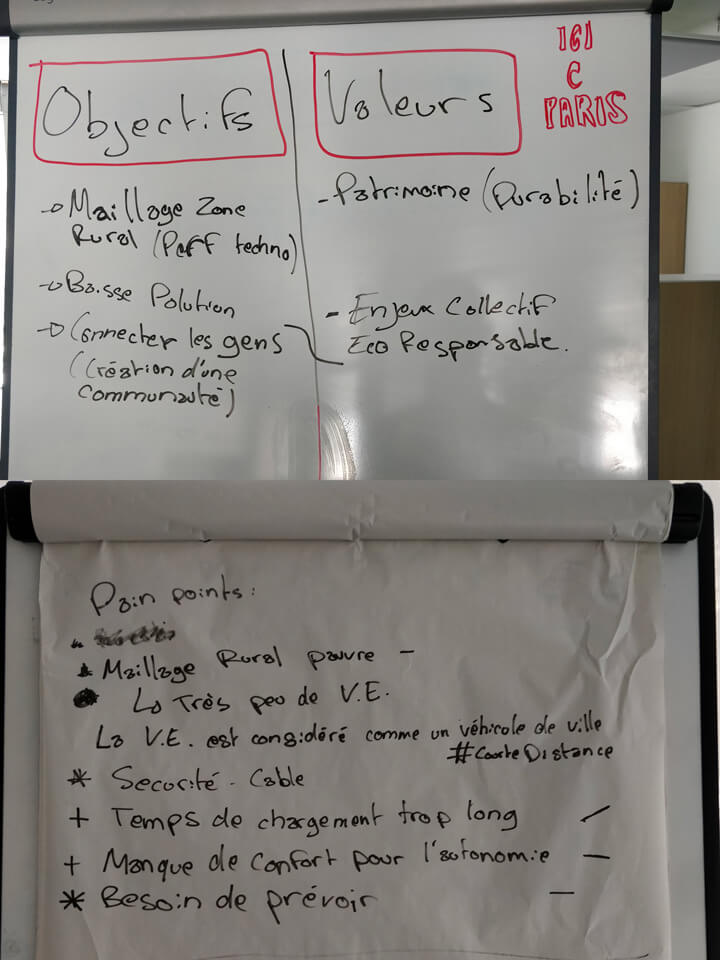 Objectifs
Valeurs
ICI
C
PARIS
→ Maillage Zone
Rural (Perf techno)
→ Baisse Polution
→ Connecter les gens
(Création d'une
communauté)
- Patrimoine (Durabilité)
- Enjeux Collectif
Eco Responsable.
Pain points :
Maillage Rural pauvre -
↳ Très peu de V.E.
↳ V.E. est considéré comme un véhicule de ville
#CourteDistance
* Securité - Cable
+ Temps de chargement trop long -
+ Manque de confort pour l'autonomie -
* Besoin de prévoir -